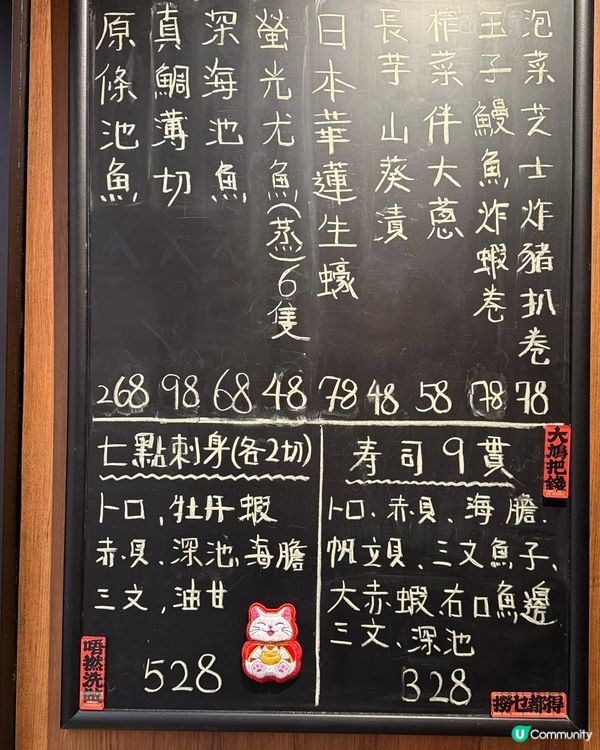 泡菜芝士炸豬扒卷 78
玉子鰻魚炸蝦卷 78
榨菜伴大蔥 58
長芋山葵漬 48
日本華蓮生蠔 78
螢光尤魚(蒸)6隻 48
深海池魚 68
真鯛薄切 98
原條池魚 268
七點刺身(各2切)
トロ,牡丹蝦
赤貝、深池,海膽
三文,油甘
528
寿司9貫
トロ、赤貝、海膽、
帆立貝、三文魚子、
大赤蝦、右口魚邊
三文、深池
328
大鳩把錢
唔撚洗
撈乜都得
U Community